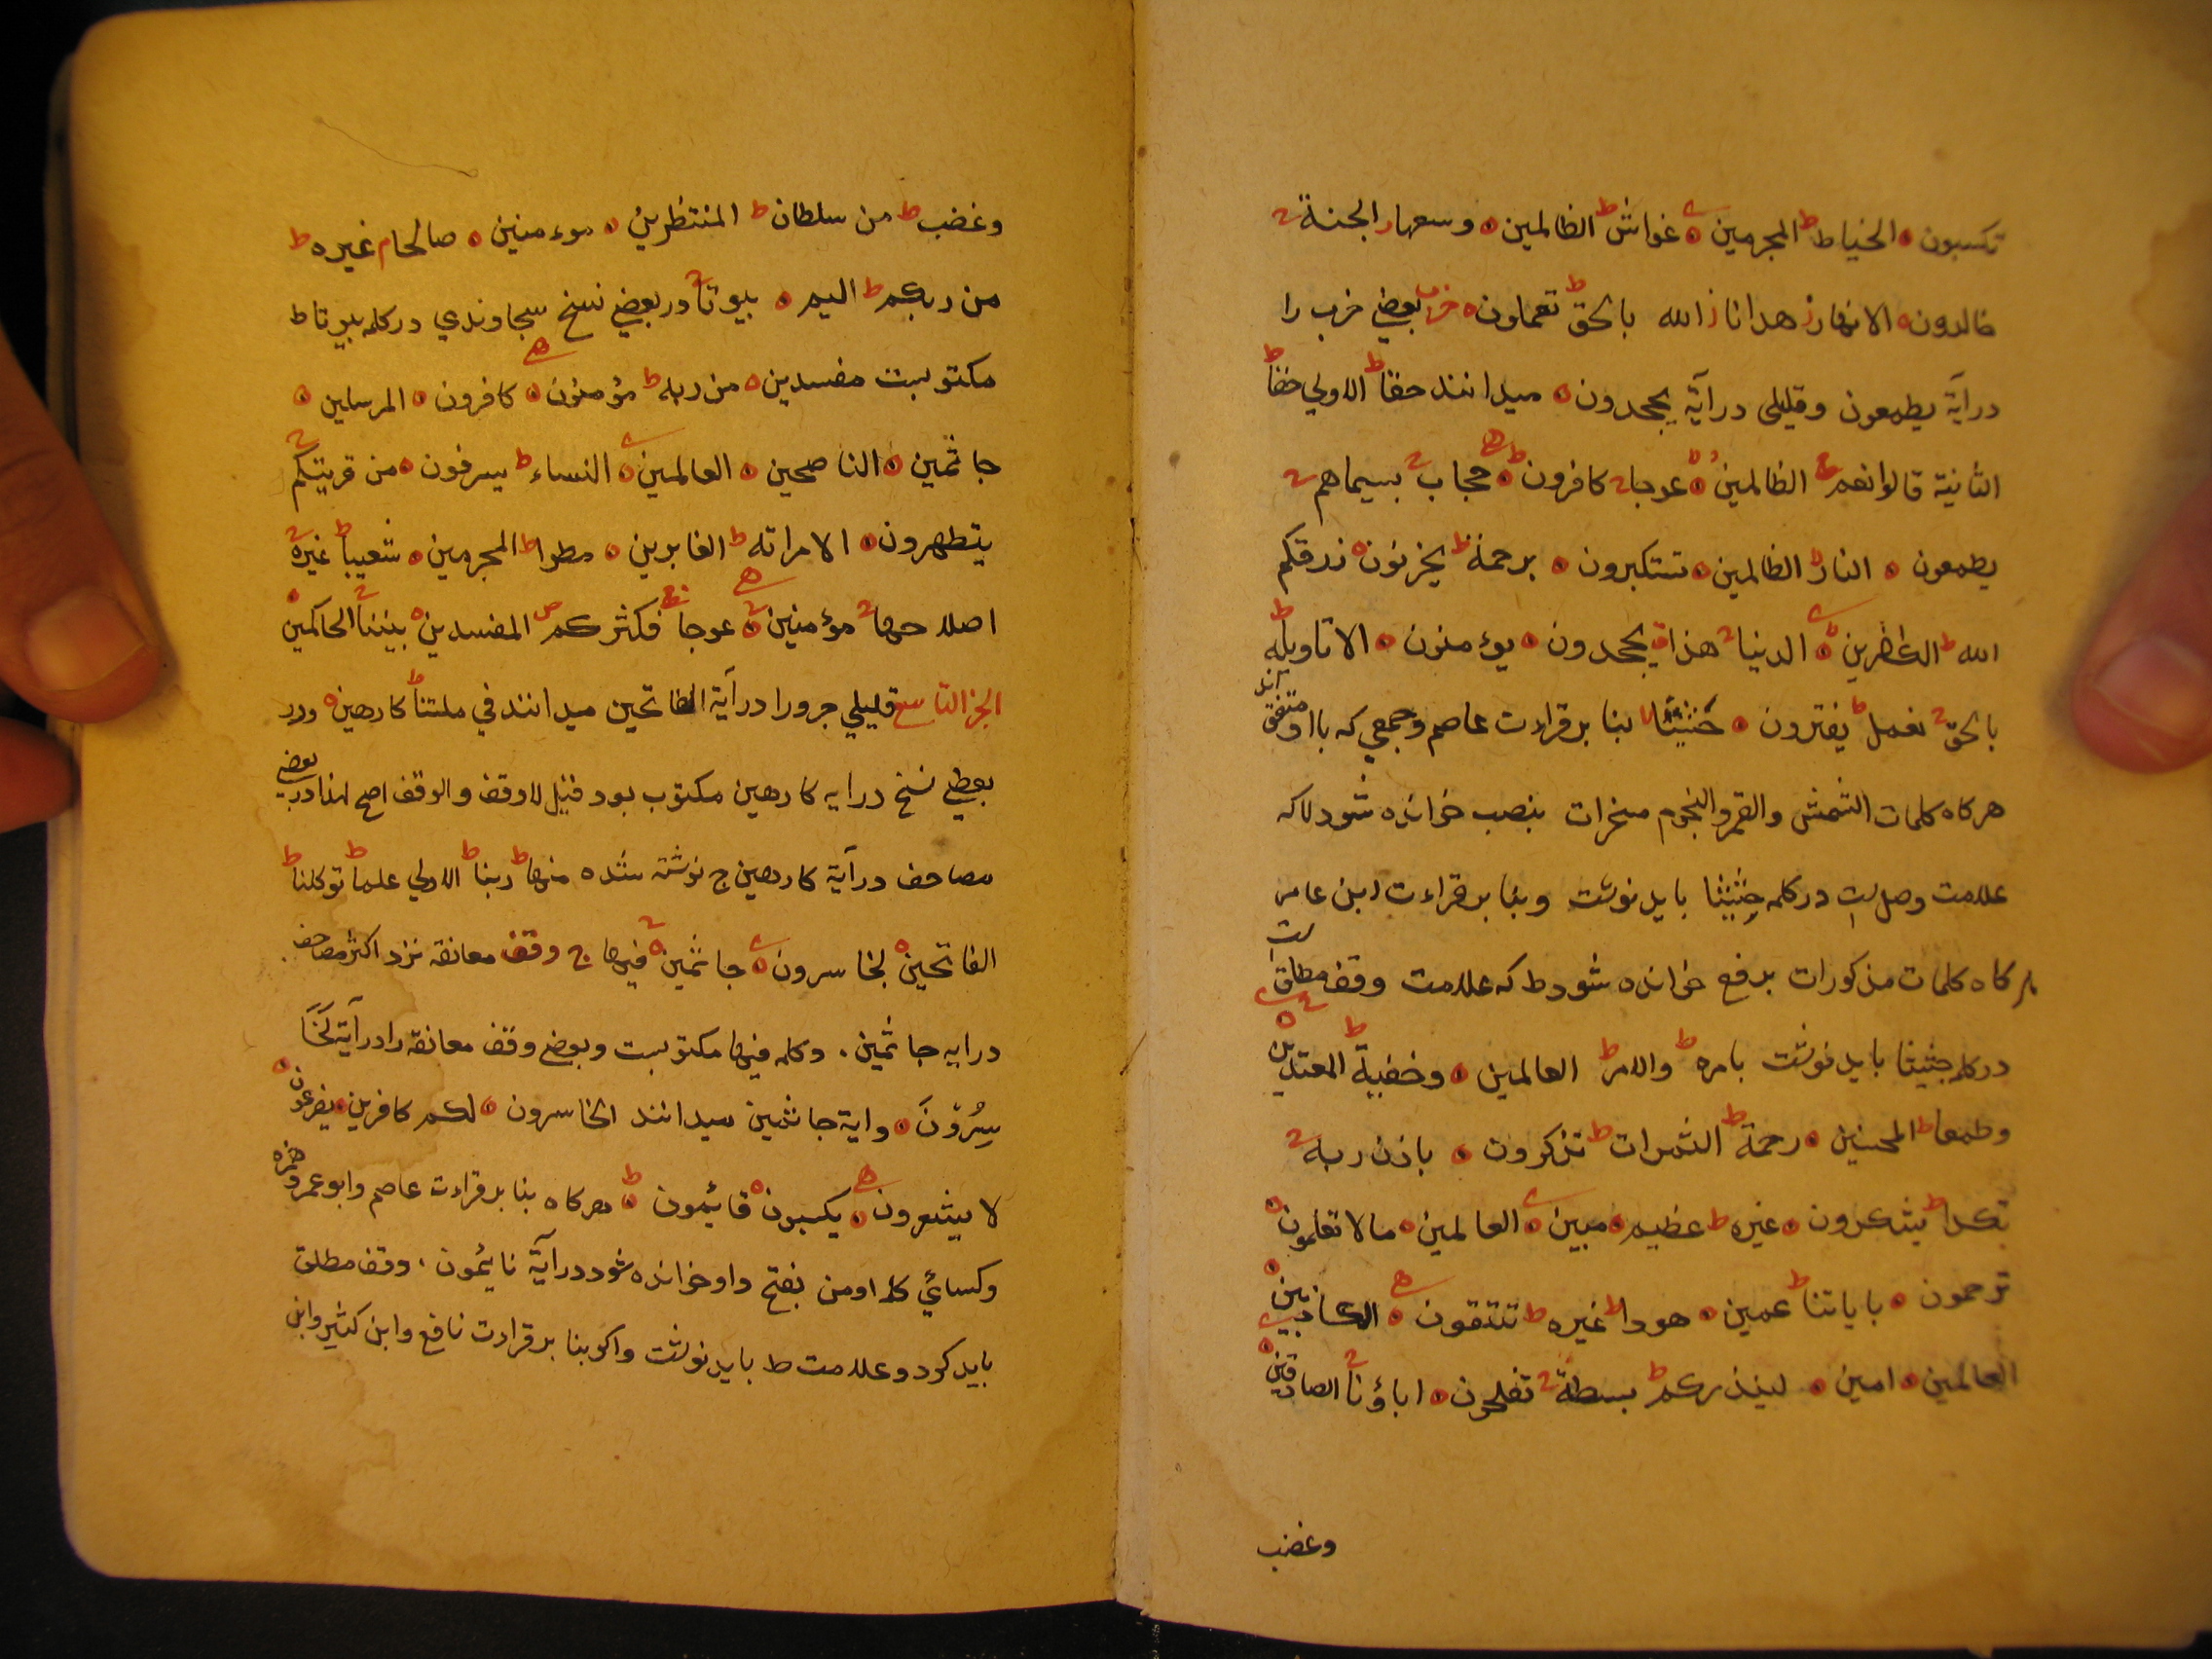 تكسبون ه الخياط ط المجرمين ه غواش ط الظالمين ه وسعها ز الجنة ج
خالدون ه الانهار ز هدانا ز الله بالحق ط تعملون ه بعضي حزب را
در آية يطمعون وقليلى در آية يجحدون ه ميدانند حقا ط الاولي حقا ط
الثانية قالوا نعم ج الظالمين ه عوجا ج كافرون ه ط حجاب ج بسيماهم ج
يطمعون ه النار الظالمين ه تستكبرون ه برحمة ط يحزنون ه رزقكم
الله ط الكافرين ه الدنيا ج هذا يجحدون ه يوءمنون ه الا تاويله ط
بالحق ج نعمل ط يفترون ه حثيثا لا بنا بر قراءت عاصم وجمعي كه با او متفق اند
هركاه كلمات الشمس والقمر والنجوم مسخرات بنصب خوانده شود لا كه
علامت وصل است در كلمه حثيثا بايد نوشت وبنا بر قراءت ابن عامر
هر كاه كلمات مذكورات برفع خوانده شود ط كه علامت وقف مطلق است
در كلمه حثيثا بايد نوشت بامره ط والامر ط العالمين ه وخفية ط المعتدين ه
وطمعا ط المحسنين ه رحمة ط الثمرات ط تذكرون ه باذن ربه ج
نكدا ط يشكرون ه غيره ط عظيم ه مبين ه العالمين ه مالا تعلمون ه
ترحمون ه باياتنا ط عمين ه هودا ط غيره ط تتقون ه الكاذبين ه
العالمين ه امين ه لينذركم ط بسطة ج تفلحون ه اباؤنا ج الصادقين ه
وغضب
وغضب ط من سلطان ط المنتظرين ه موءمنين ه صالحا م غيره ط
من ربكم ط اليم ه بيوتا ج در بعضي نسخ سجاوندي در كلمه بيوتا ط
مكتوبست مفسدين ه من ربه ط مؤمنون ه كافرون ه المرسلين ه
جاثمين ه الناصحين ه العالمين ه النساء ط يسرفون ه من قريتكم ج
يتطهرون ه الا امراته ط الغابرين ه مطرا ط المجرمين ه شعيبا ط غيره ج
اصلاحها ج مؤمنين ه عوجا ج فكثركم ص المفسدين ه بيننا ج الحاكمين ه
الجز التاسع قليلي جرورا در آية الفاتحين ميدانند في ملتنا ط كارهين ه ودر
بعضي نسخ در ايه كارهين مكتوب بود قيل لا وقف والوقف اصح لهذا در بعضي
مصاحف در آية كارهين ج نوشته شده منها ط ربنا ط الاولي علما ط توكلنا ط
الفاتحين ه لخاسرون ه جاثمين ه فيها ج وقف معانقه نزد اكثر مصاحف
در ايه جاثمين . وكلمه فيها مكتوبست وبعضي وقف معانقه را در آية لخا
سرون ه واية جاثمين ميدانند الخاسرون ه لكم كافرين ه يضرعون ه
لا يشعرون ه يكسبون ه قائمون ه ط هركاه بنا بر قراءت عاصم وابو عمرو وحمزه
وكسائي كلمه اومن بفتح واو خوانده شود در آية نايمون . وقف مطلق
بايد كرد و علامت ط بايد نوشت واكر بنا بر قراءت نافع وابن كثير وابن